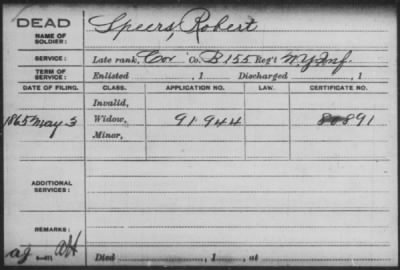 DEAD
NAME OF SOLDIER:
Speers, Robert
SERVICE:
Late rank, Cor Co. B 155 Reg't N.Y. Inf.
TERM OF SERVICE:
Enlisted , 1 Discharged , 1
DATE OF FILING. CLASS. APPLICATION NO. LAW. CERTIFICATE NO.
Invalid,
1865 May 3 Widow, 91.944 80891
Minor,
ADDITIONAL SERVICES:
REMARKS:
Died , 1 , at